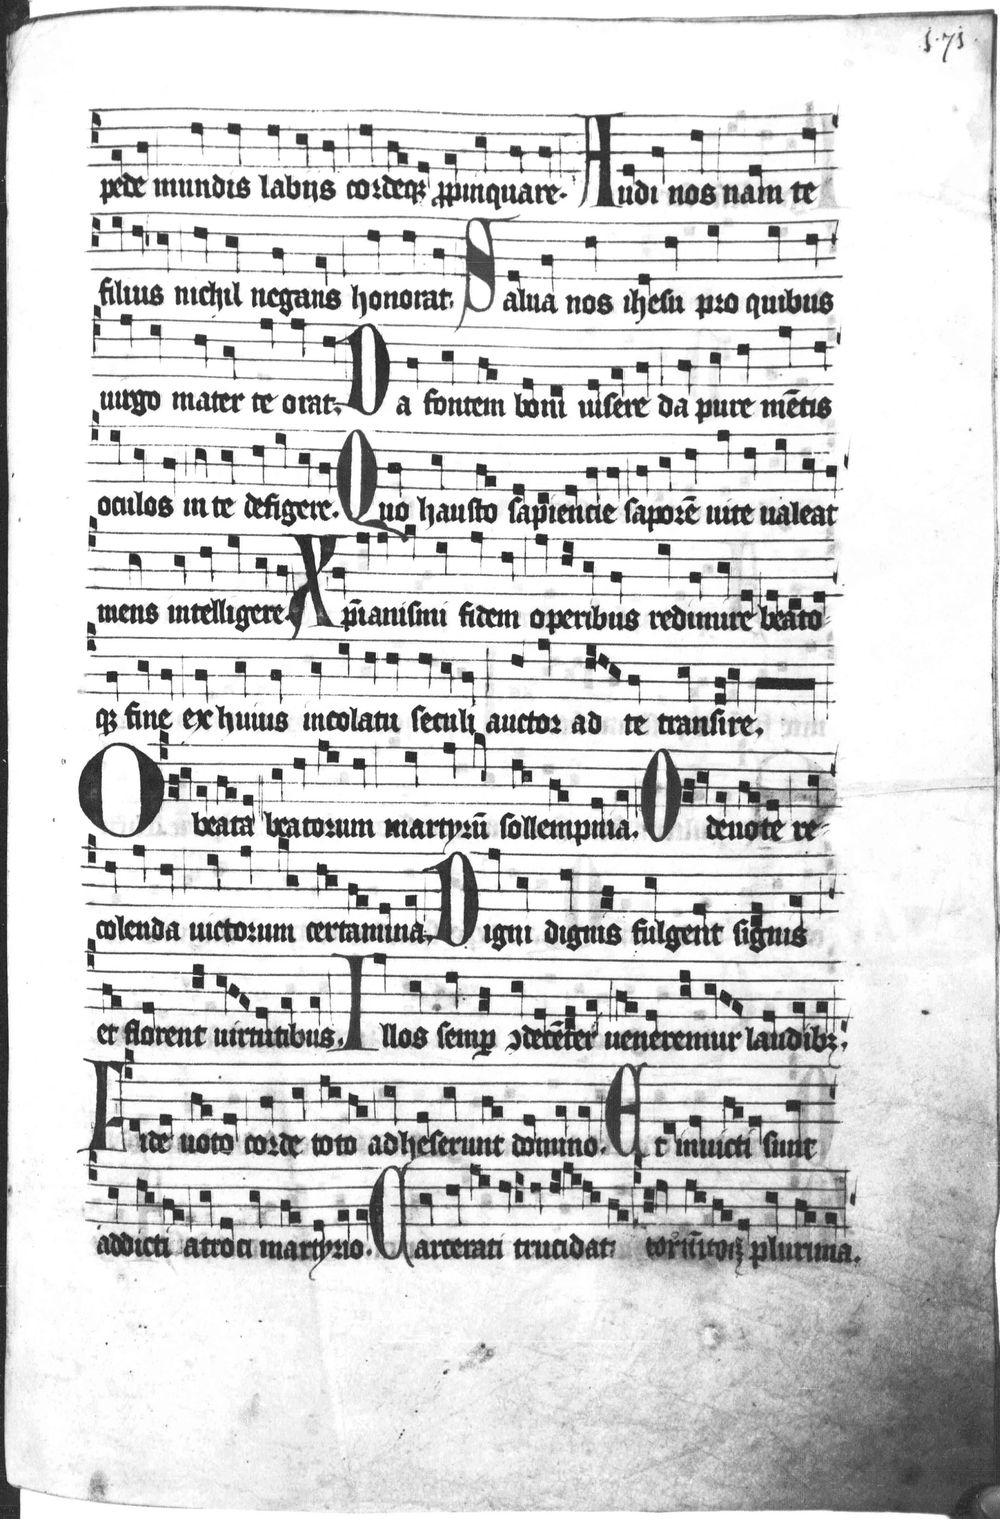 171
pede mundis labiis cordeqꝫ ꝓpinquare. Audi nos nam te
filius nichil negans honorat. Salua nos ihesu pro quibus
uirgo mater te orat. Da fontem boni uisere da pure mētis
oculos in te defigere. Quo hausto sapiencie saporē uite ualeat
mens intelligere. Xp̄ianismi fidem operibus redimire beato
qꝫ fine ex huius incolatu seculi auctor ad te transire.
O beata beatorum martyrū sollempnia. O deuote re
colenda uictorum certamina. Digni dignis fulgent signis
et florent uirtutibus. Illos semꝑ ꝯdecēter ueneremur laudibꝫ.
Fide uoto corde toto adheserunt domino. Et inuicti sunt
addicti atroci martyrio. Carcerati trucidati tormētoꝝ plurima.